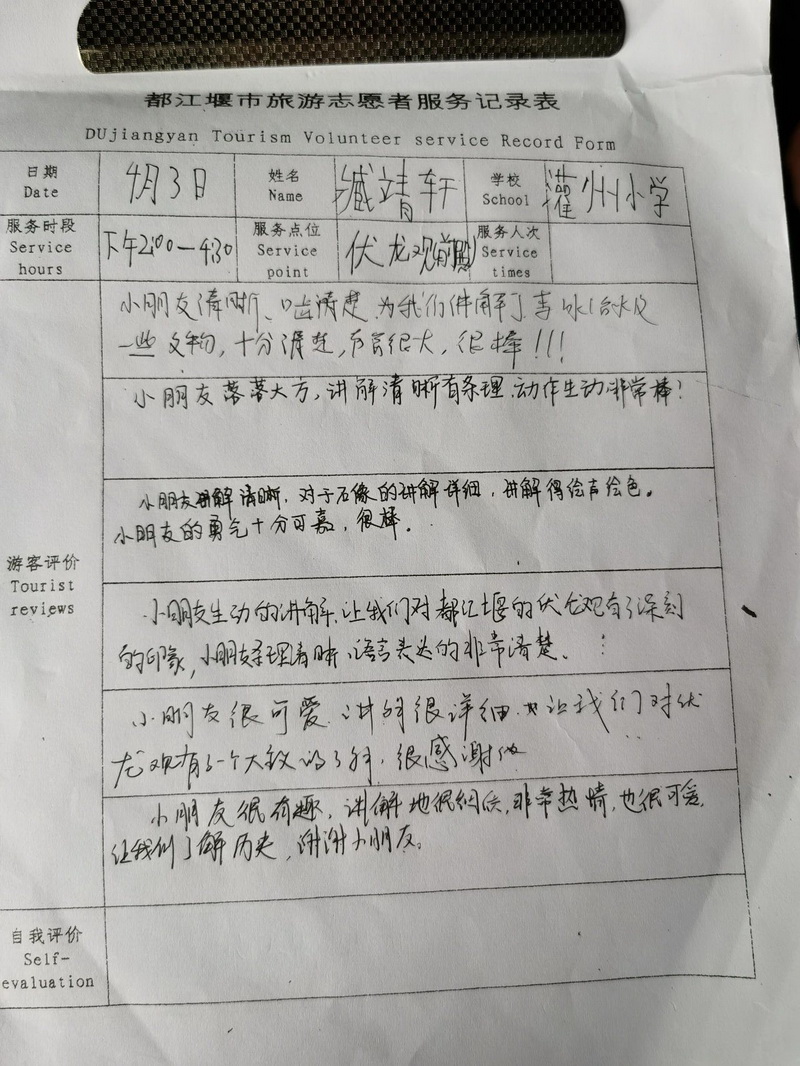 都江堰市旅游志愿者服务记录表
DUjiangyan Tourism Volunteer service Record Form
日期
Date
4月3日
姓名
Name
臧靖轩
学校
School
灌州小学
服务时段
Service
hours
下午2:00—4:30
服务点位
Service
point
伏龙观前殿
服务人次
Service
times
小朋友清晰、口齿清楚,为我们讲解了李冰治水及
一些文物,十分清楚,声音很大,很棒!!!
小朋友落落大方,讲解清晰有条理,动作生动非常棒!
小朋友讲解清晰,对于石像的讲解详细,讲解得绘声绘色。
小朋友的勇气十分可嘉,很棒。
游客评价
Tourist
reviews
小朋友生动的讲解,让我们对都江堰的伏龙观有了深刻
的印象,小朋友条理清晰,语言表达的非常清楚。
小朋友很可爱,讲解很详细,让我们对伏
龙观有了一个大致的了解,很感谢他
小朋友很有趣,讲解地很细致,非常热情,也很可爱,
让我们了解历史,谢谢小朋友。
自我评价
Self-
evaluation